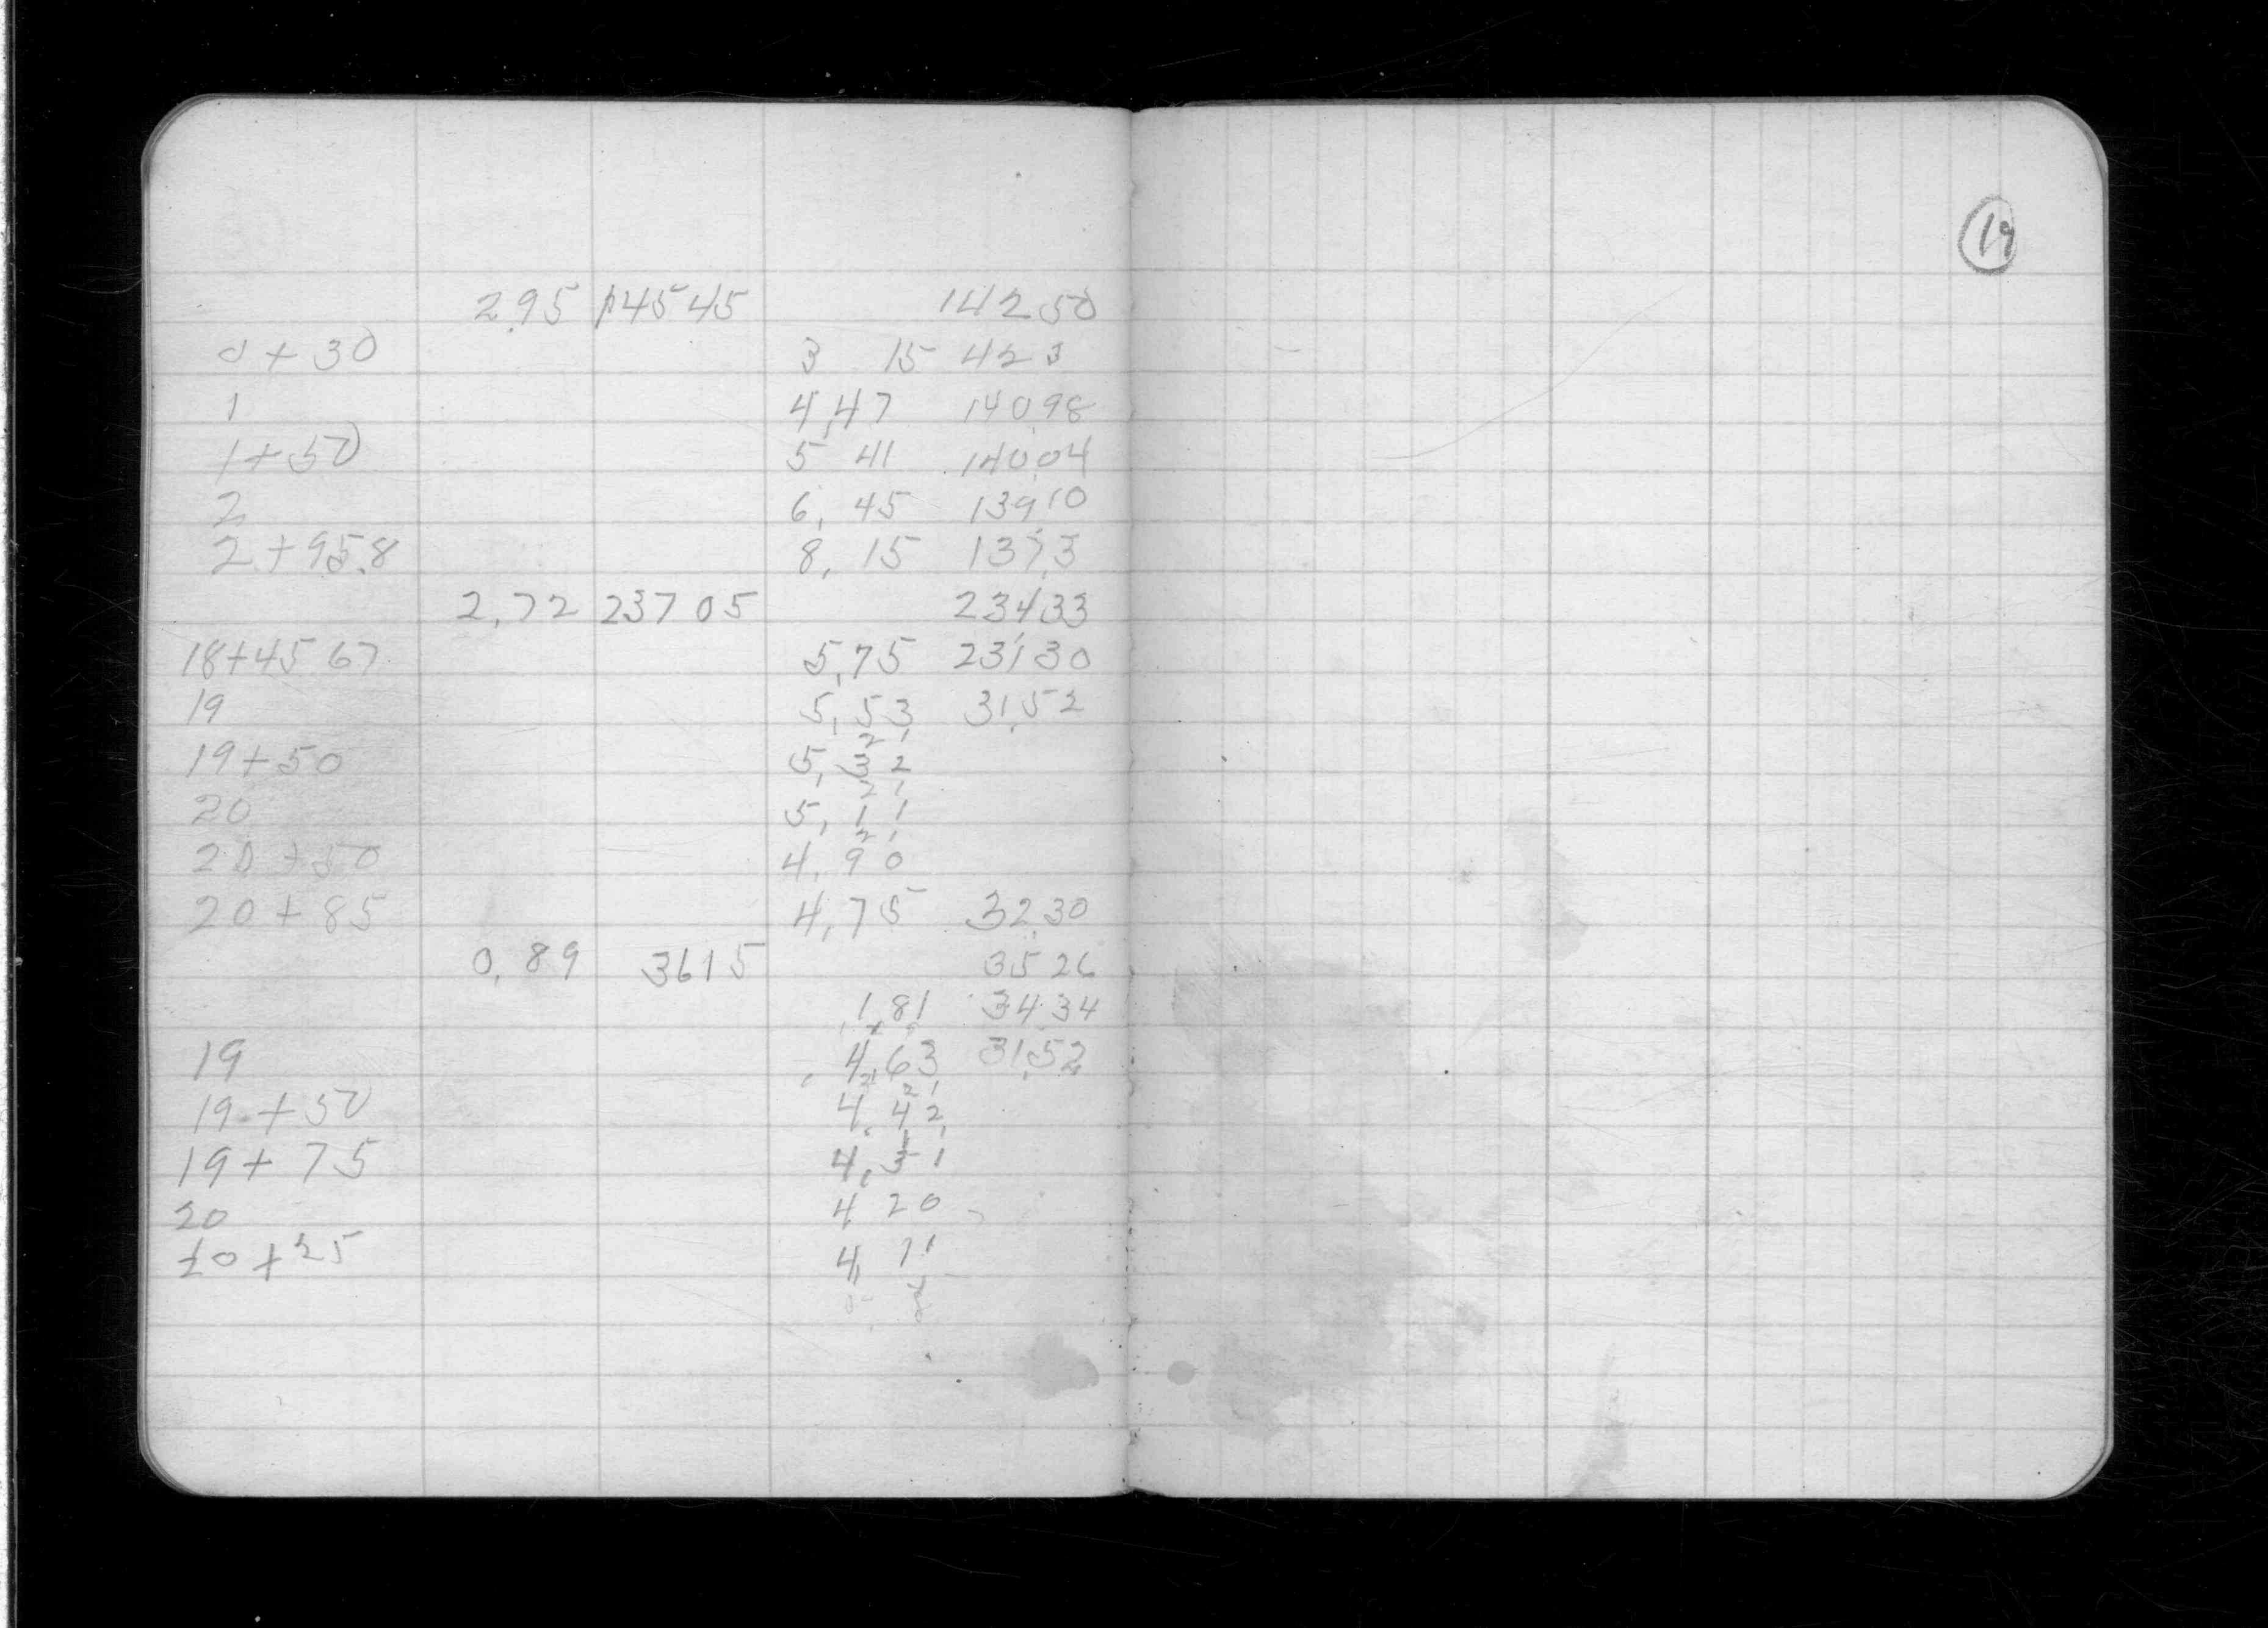 2.95 145 45 142 50
0 + 30 3 15 42 3
1 4,47 140.98
1 + 50 5 41 140.04
2 6, 45 139.10
2 + 95.8 8, 15 137.3
2,72 237 05 234,33
18+45 67 5,75 231 30
19 5, 53 31.52
21
19 + 50 5, 32
21
20 5, 11
21
20 + 50 4, 90
20 + 85 4,75 32.30
0, 89 36 15 35 26
1,81 34.34
19 4,63 31.52
21
19 + 50 4, 42
19 + 75 4, 31
20 4 20
20 + 25 4, 11
19